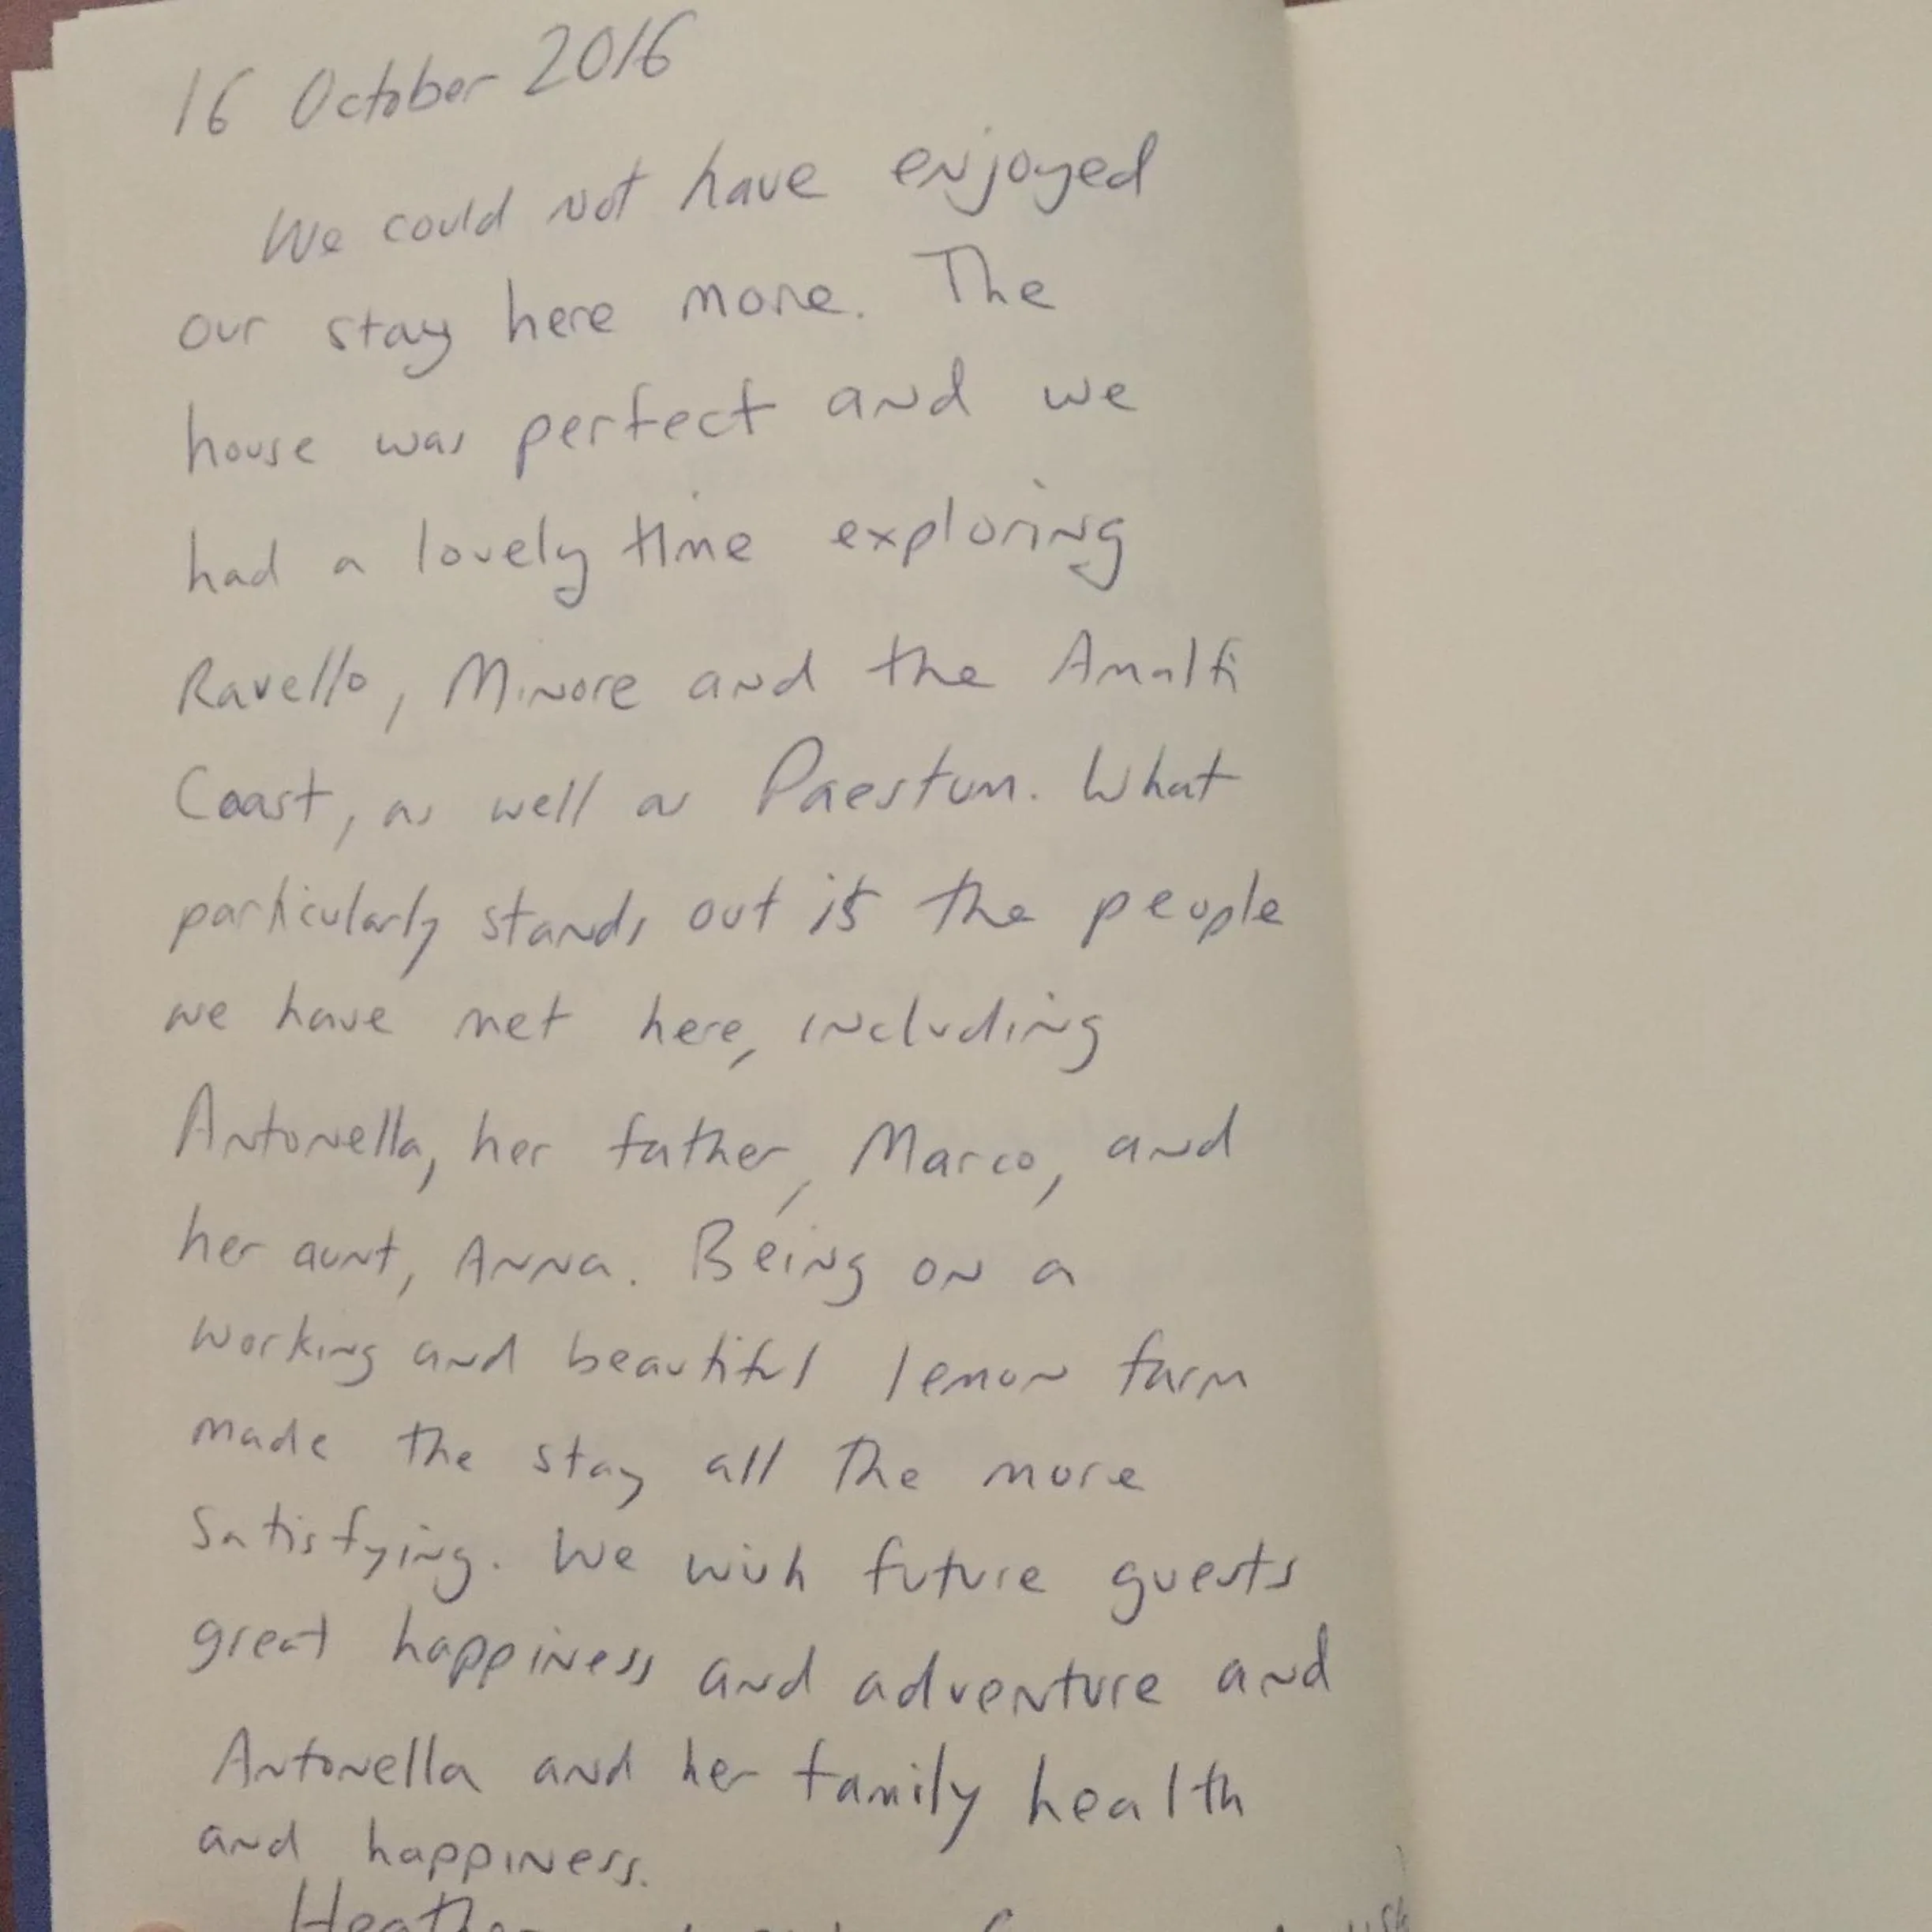 16 October 2016
We could not have enjoyed
our stay here more. The
house was perfect and we
had a lovely time exploring
Ravello, Minore and the Amalfi
Coast, as well as Paestum. What
particularly stands out is the people
we have met here, including
Antonella, her father, Marco, and
her aunt, Anna. Being on a
working and beautiful lemon farm
made the stay all the more
satisfying. We wish future guests
great happiness and adventure and
Antonella and her family health
and happiness.